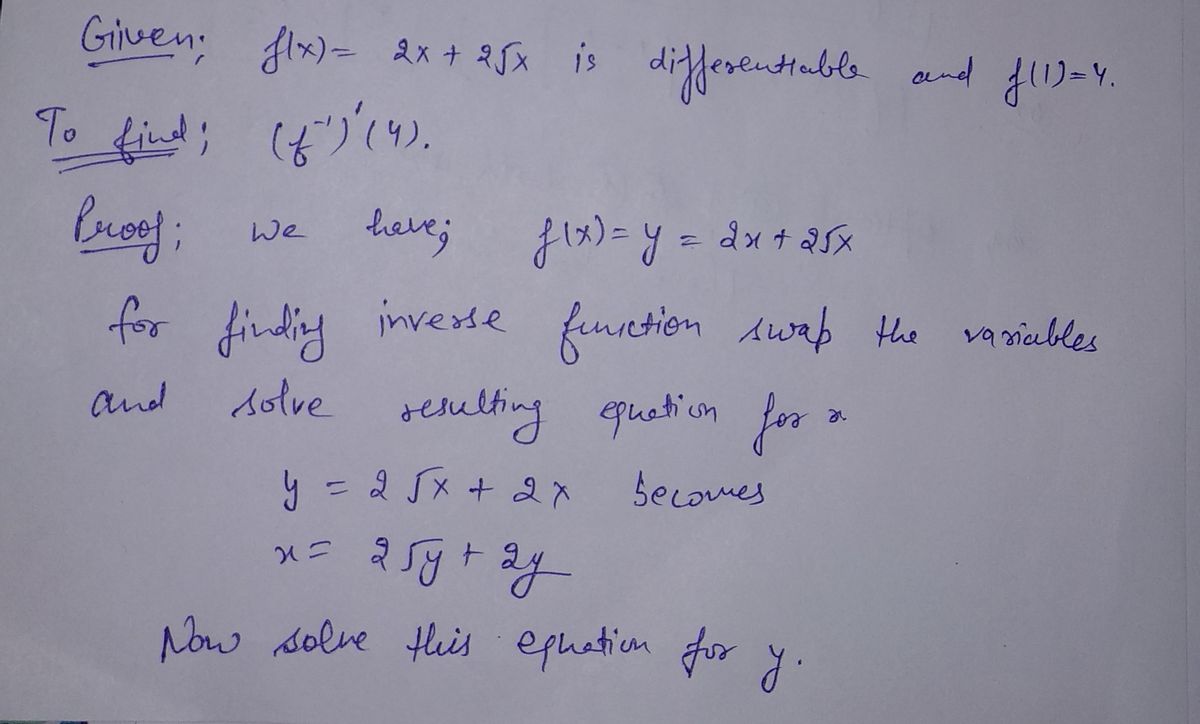 Given; f(x) = 2x + 2√x is differentiable and f(1)=4.
To find; (f⁻¹)'(4).
Proof; we have; f(x) = y = 2x + 2√x
for finding inverse function swap the variables
and solve resulting equation for x
y = 2√x + 2x becomes
x = 2√y + 2y
Now solve this equation for y.